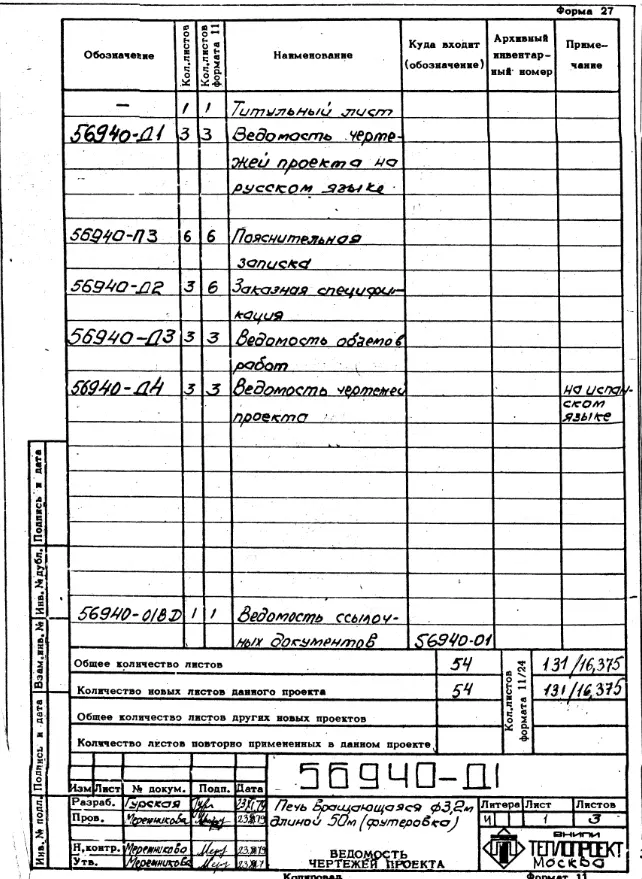 Форма 27
Обозначение Кол.листов Кол.листов формата 11 Наименование Куда входит (обозначение) Архивный инвентар-ный номер Приме-чание
— 1 1 Титульный лист
56940-Д1 3 3 Ведомость черте-
жей проекта на
русском языке
56940-ПЗ 6 6 Пояснительная
записка
56940-Д2 3 6 Заказная специфи-
кация
56940-Д3 3 3 Ведомость объемов
работ
56940-Д4 3 3 Ведомость чертежей на испан-
ском
проекта языке
56940-01ВД 1 1 Ведомость ссылоч-
ных документов 56940-01
Общее количество листов 54 Кол.листов формата 11/24 131/16,375
Количество новых листов данного проекта 54 131/16,375
Общее количество листов других новых проектов
Количество листов повторно примененных в данном проекте
56940-Д1
Изм Лист № докум. Подп. Дата
Разраб. Гурская Печь вращающаяся ф3,2м Литера Лист Листов
Пров. Меренникова длиной 50м (футеровка) И 1 3
Н.контр. Меренникова ВЕДОМОСТЬ ВНИПИ
Утв. Меренникова ЧЕРТЕЖЕЙ ПРОЕКТА ТЕПЛОПРОЕКТ
Москва
Копировал Формат 11
Инв. № подл. Подпись и дата Взам.инв. № Инв. № дубл. Подпись и дата